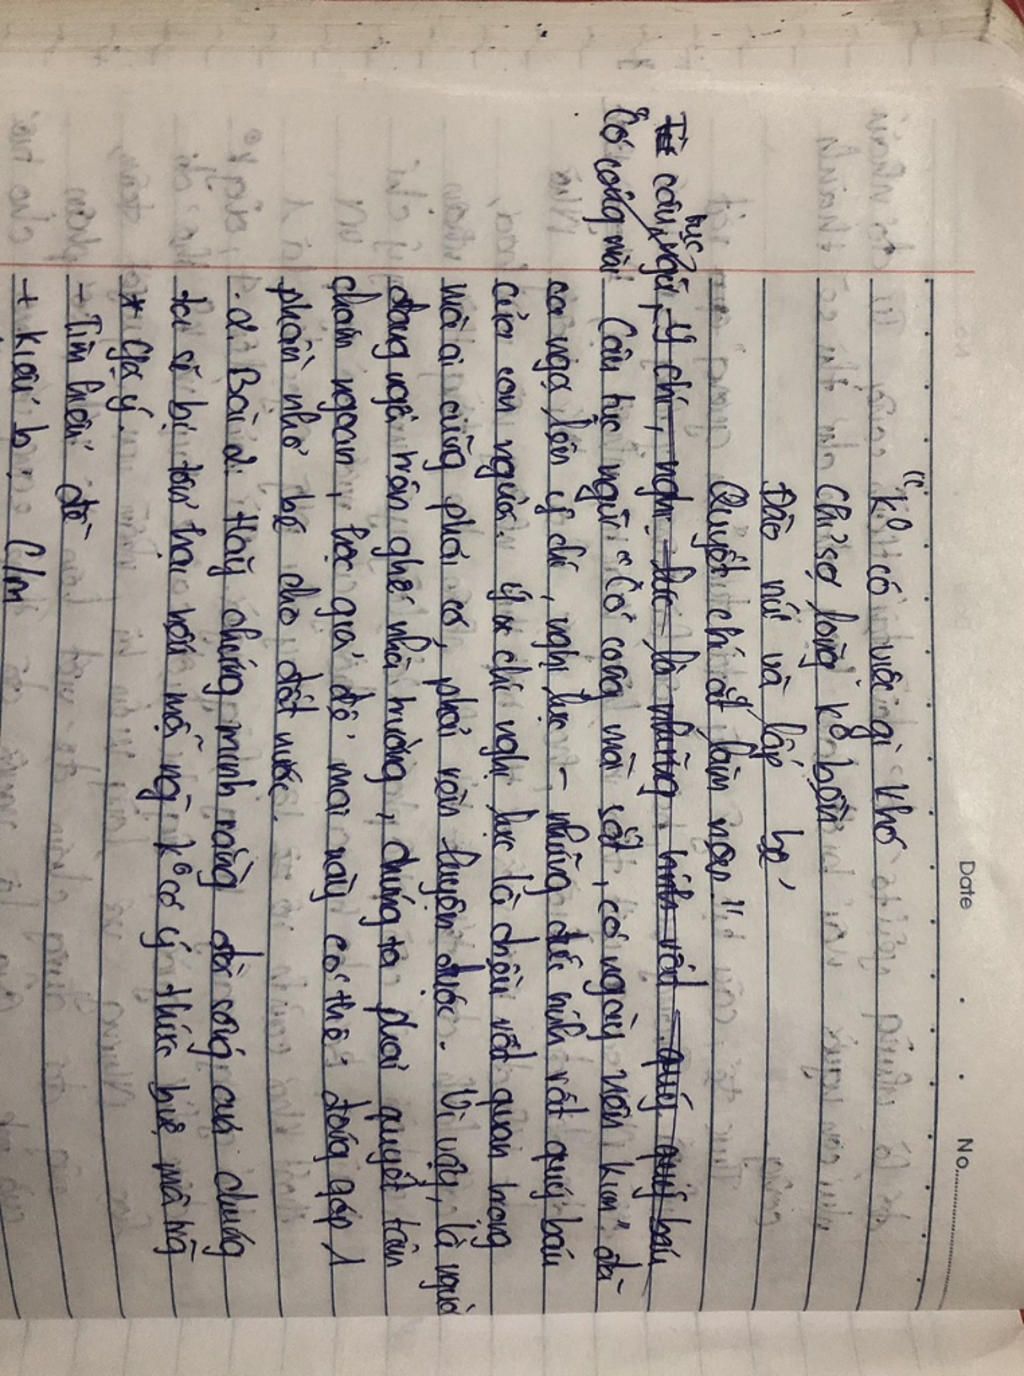 Date
No.
"K°có việc gì khó
Chỉ sợ lòng k° bền
Đào núi và lấp bể
Quyết chí ắt làm nên"
câu tục ngữ, ý chí, nghị lực là những tính rất quý quý báu
Có công mài Câu tục ngữ "Có công mài sắt, có ngày nên kim" đã
ca ngợi lên ý chí, nghị lực - những đức tính rất quý báu
của con người. Ý chí nghị lực là điều rất quan trọng
mà ai cũng phải có, phải rèn luyện được. Vì vậy, là người
đang ngồi trên ghế nhà trường, chúng ta phải quyết tâm
chăm ngoan, học giỏi để mai này có thể đóng góp 1
phần nhỏ bé cho đất nước.
2. Bài 2: Hãy chứng minh rằng đời sống của chúng
ta sẽ bị tổn hại nếu mỗi ng k° có ý thức bvệ mtrg
* Gợi ý.
- Tìm hiểu đề
+ Kiểu b: C/m